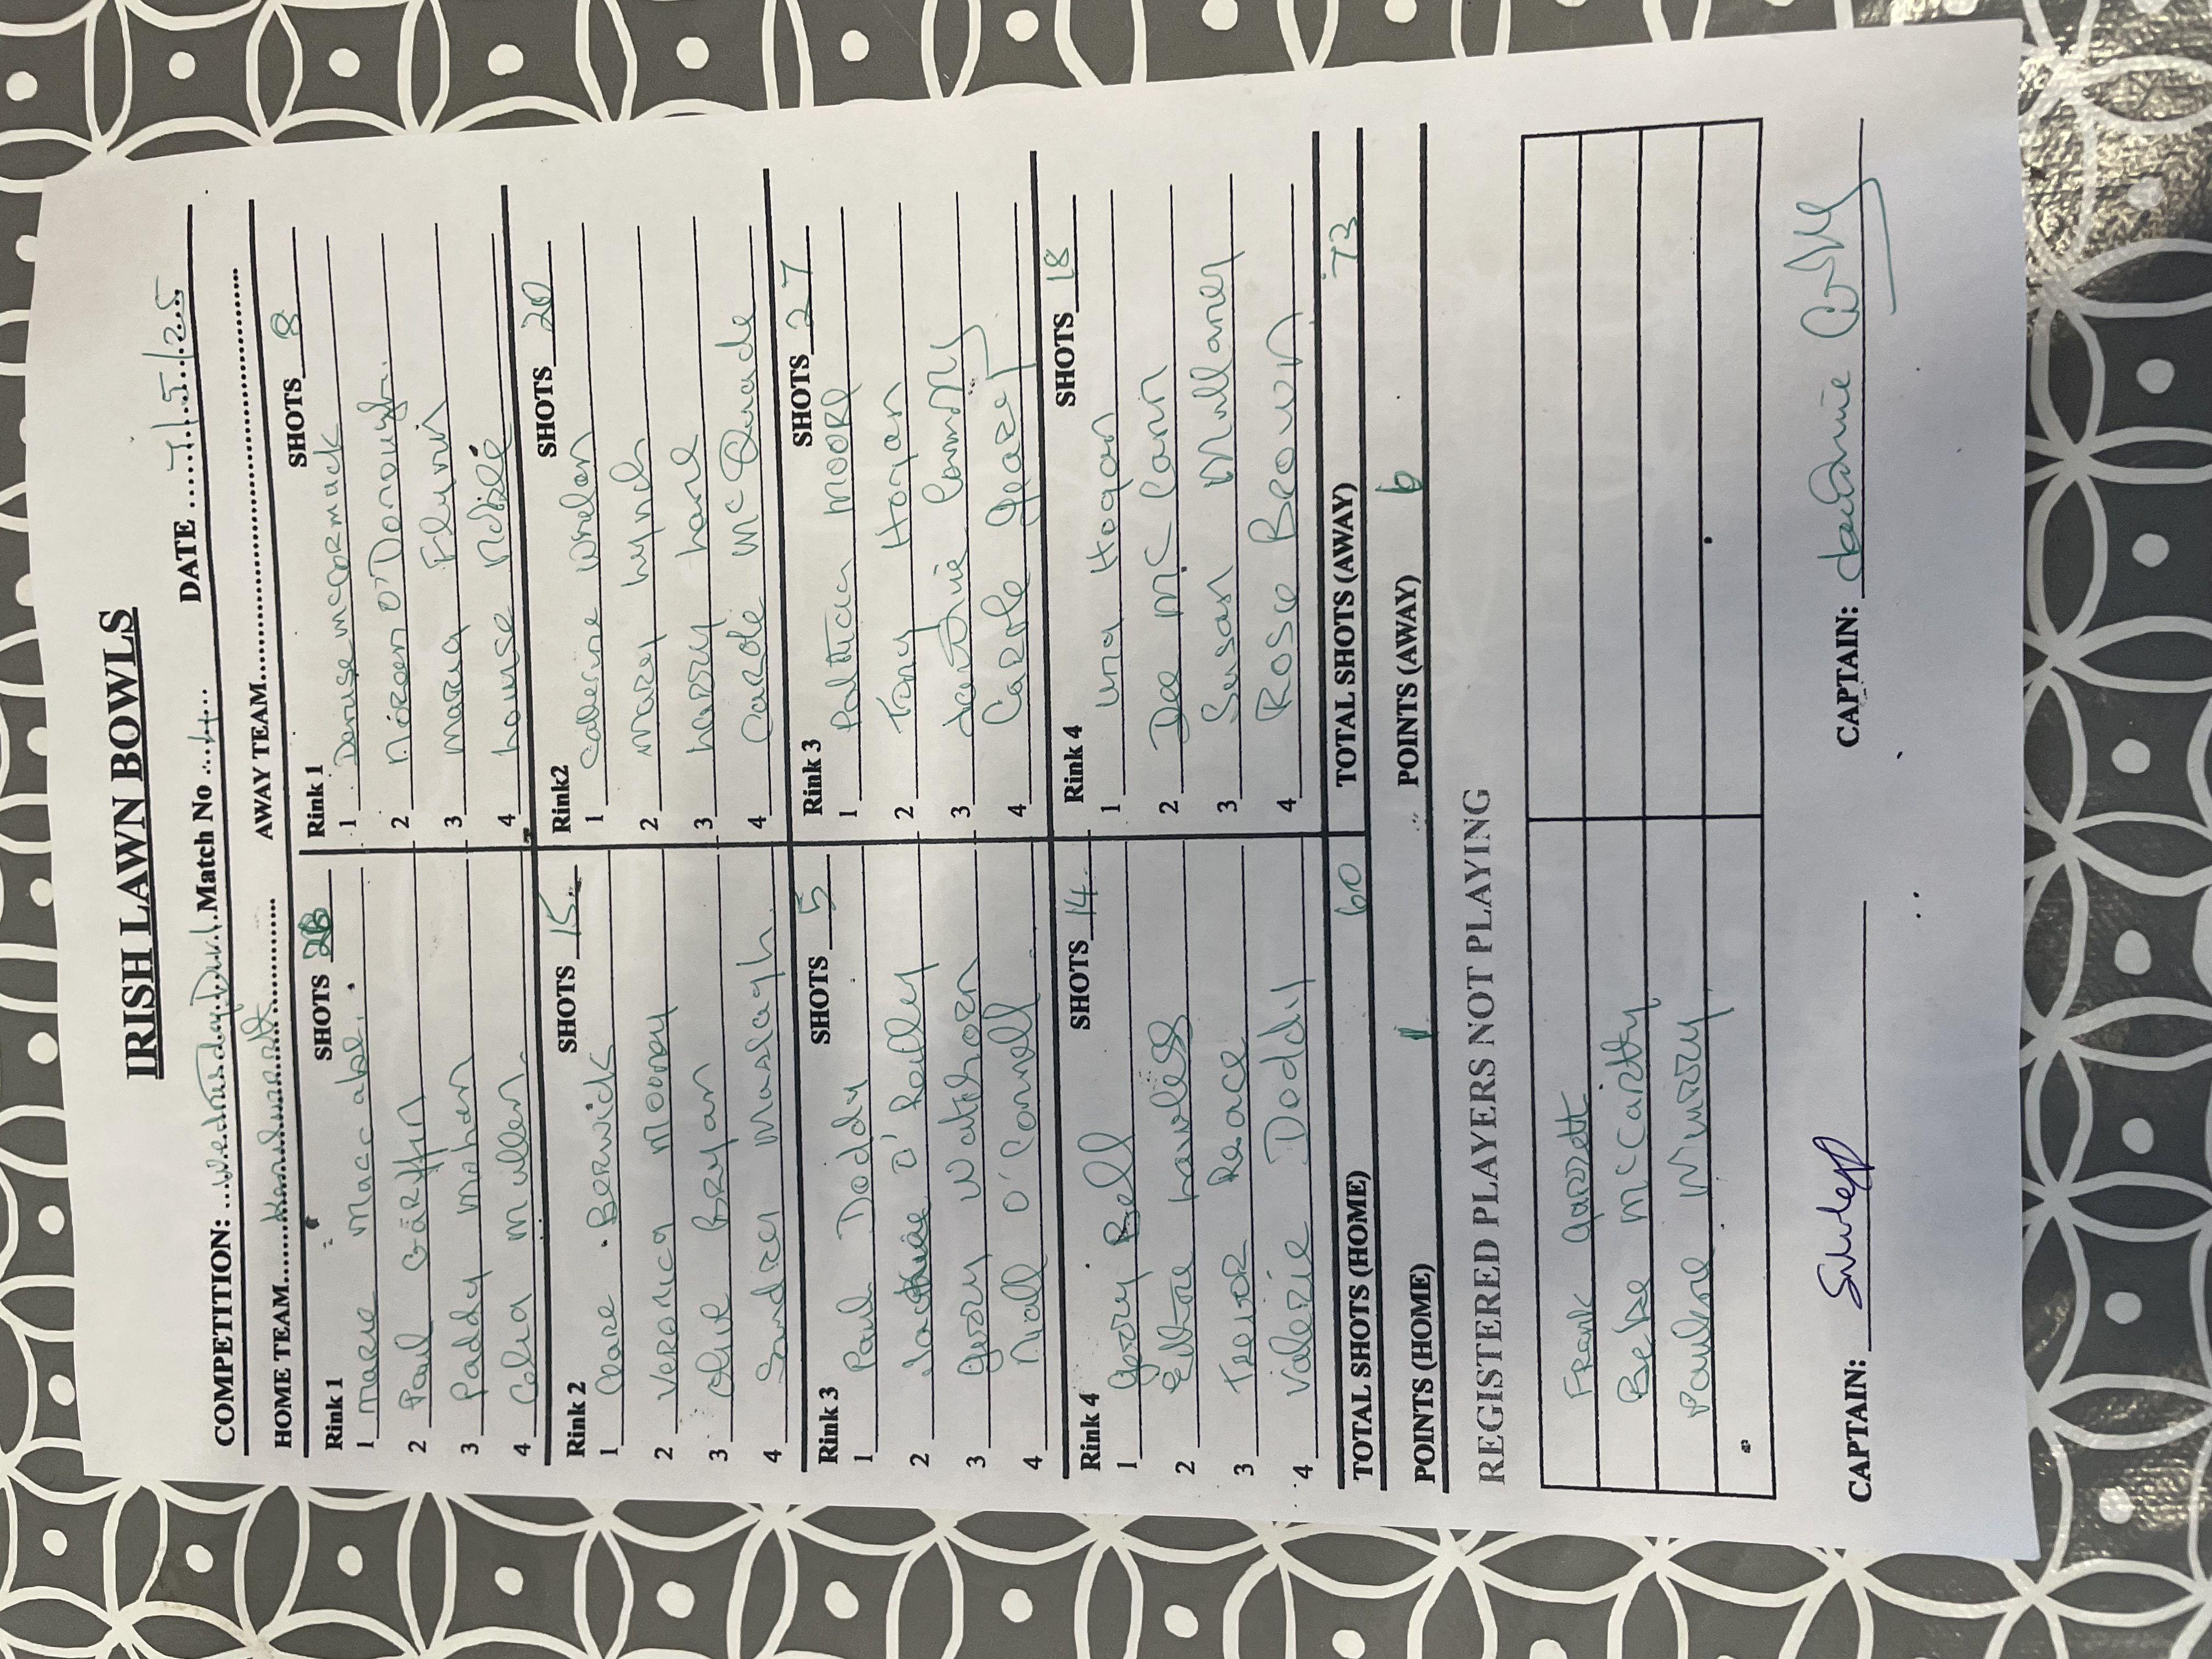 IRISH LAWN BOWLS
COMPETITION: ...Wednesday Div 1. Match No ..4... DATE ....7/.5./25
HOME TEAM...Kenilworth... AWAY TEAM...
Rink 1 SHOTS Rink 1 SHOTS 8
1 Marie Maccabe. 1 Denise McCormack
2 Paul Griffin 2 Noreen O'Donoughue.
3 Paddy Mohan 3 Maria Flynn
4 Celia Mullen 4 Louise Noble
Rink 2 SHOTS 15 Rink2 SHOTS 20
1 Clare Berwick 1 Catherine Whelan
2 Veronica Mooney 2 Mary Lynch
3 Olive Bryan 3 Harry Lane
4 Sandra Maslagh 4 Carole McQuade
Rink 3 SHOTS 5 Rink 3 SHOTS 27
1 Paul Doddy 1 Patricia Moore
2 O'Reilly 2 Tony Horgan
3 Gerry Watchorn 3
4 Niall O'Connell 4 Carole
Rink 4 SHOTS 14 Rink 4 SHOTS 18
1 Gerry Bell 1 Una Hogan
2 Lawless 2 Dee McCann
3 Trevor Peace 3 Susan Mullaney
4 Valerie Doddy 4 Rose Brown
TOTAL SHOTS (HOME) 60 TOTAL SHOTS (AWAY) 73
POINTS (HOME) 1 POINTS (AWAY) 6
REGISTERED PLAYERS NOT PLAYING
Frank Garrett
McCarthy
Pauline Murray
CAPTAIN: CAPTAIN: